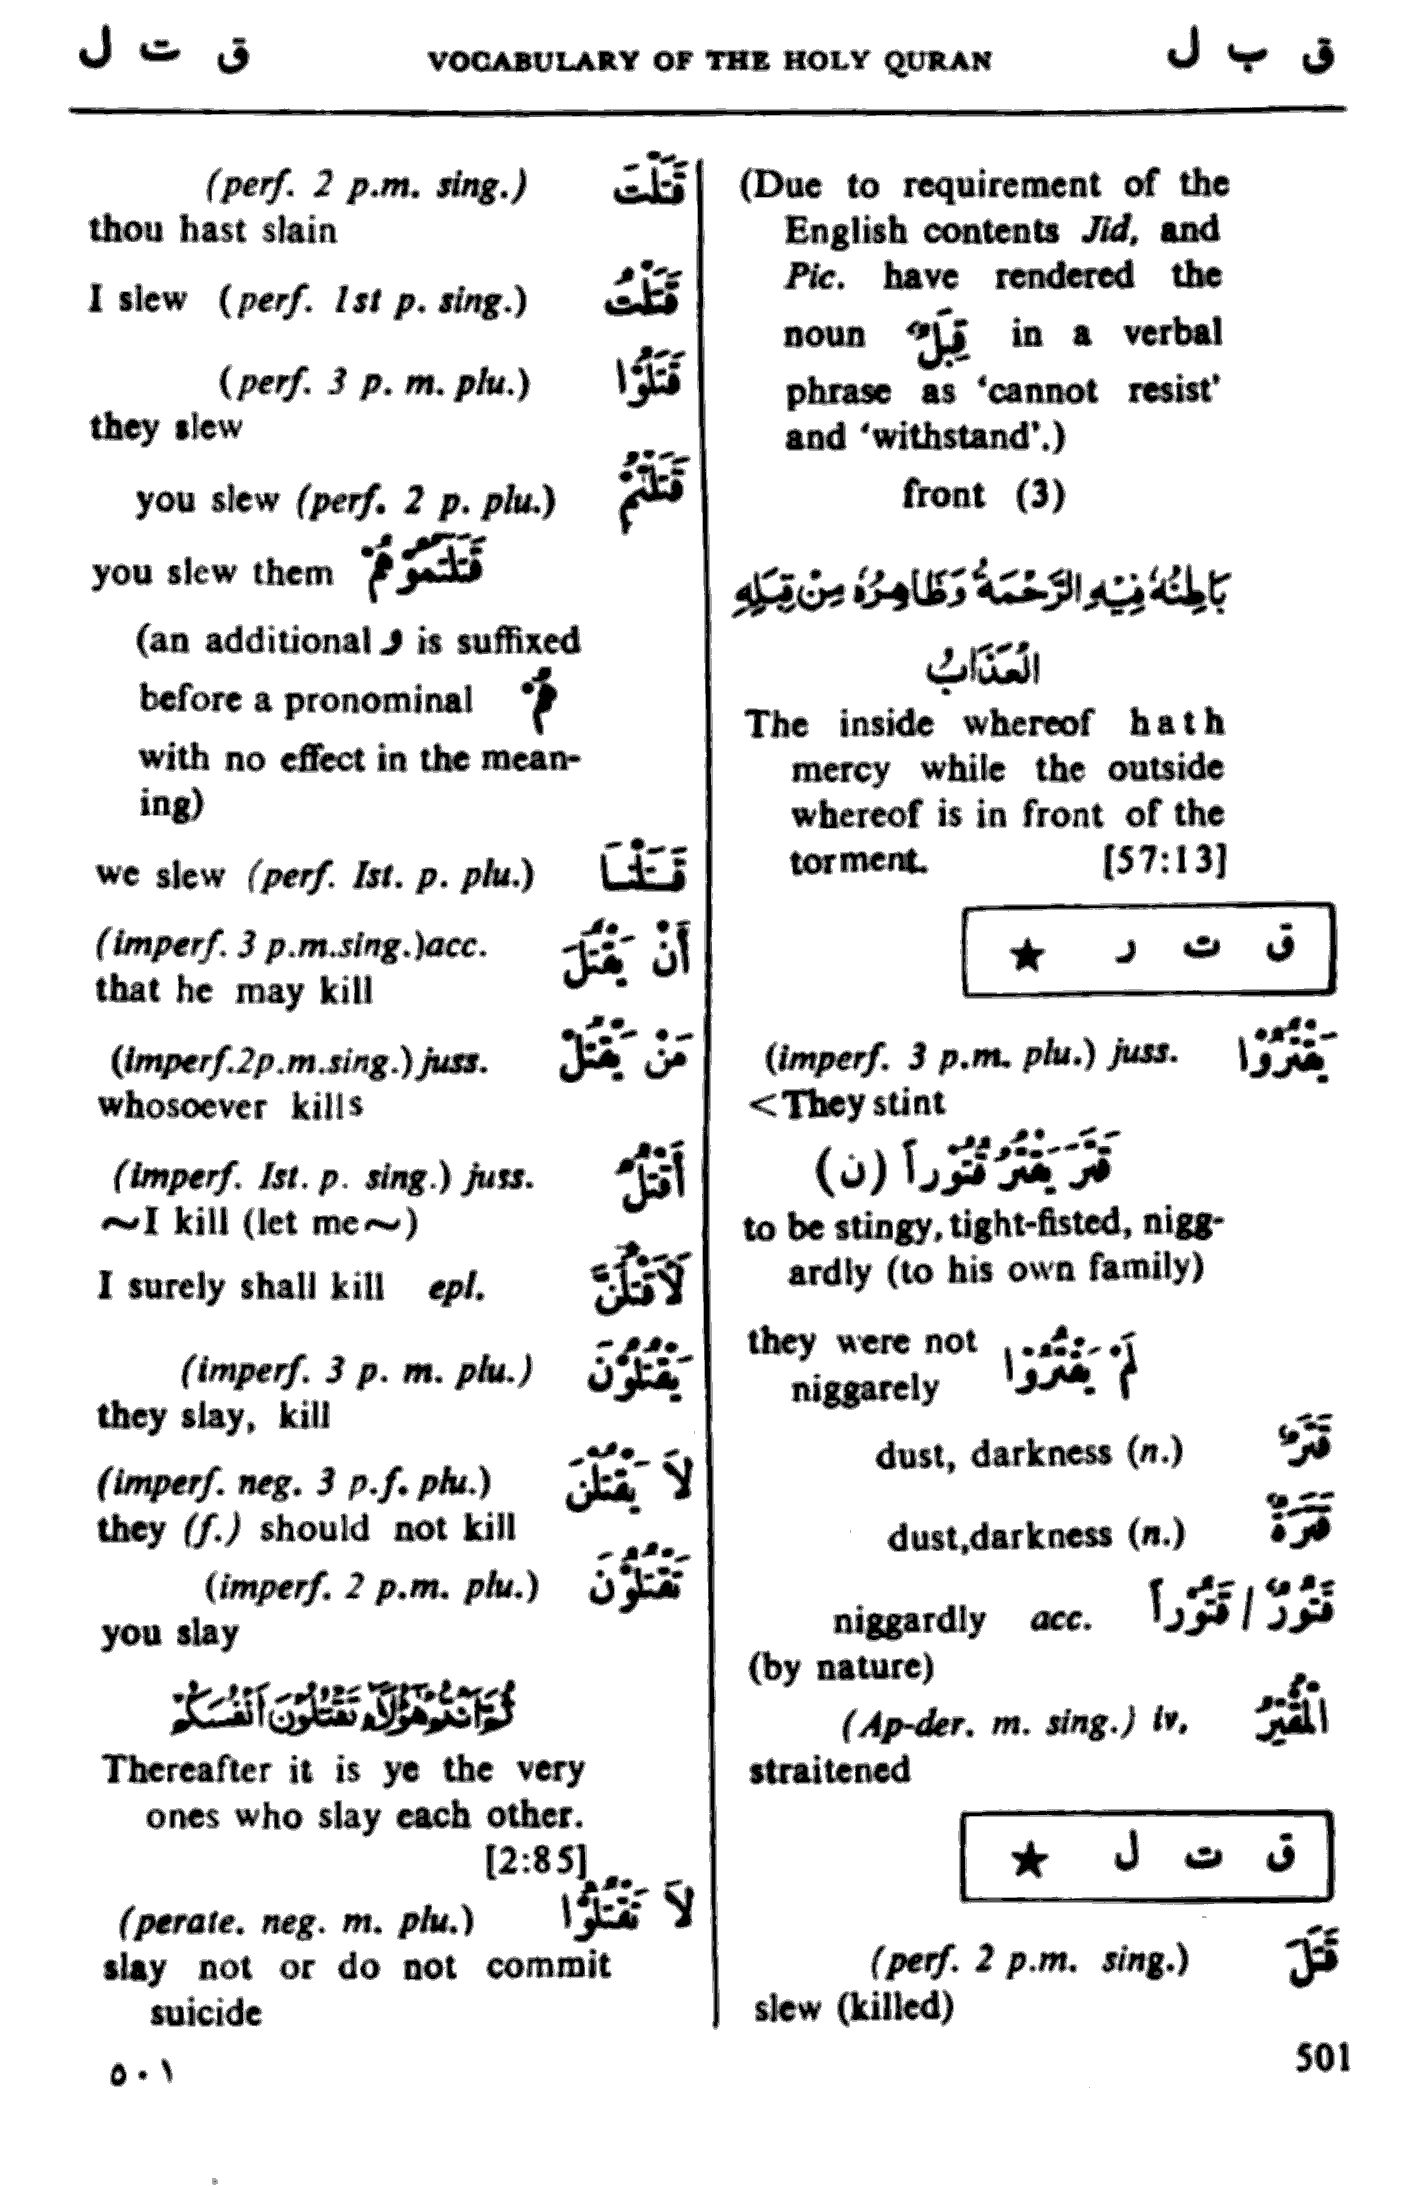 ق ب ل VOCABULARY OF THE HOLY QURAN ق ت ل
(Due to requirement of the
English contents Jid, and
Pic. have rendered the
noun قِبَلٌ in a verbal
phrase as ‘cannot resist’
and ‘withstand’.)
front (3)
بَاطِنُهُ فِيْهِ الرَّحْمَةُ وَظَاهِرُهُ مِنْ قِبَلِهِ
الْعَذَابُ
The inside whereof hath
mercy while the outside
whereof is in front of the
torment. [57:13]
ق ت ر ★
(imperf. 3 p.m. plu.) juss. يَقْتُرُوْا
<They stint
قَتَرَ يَقْتُرُ قُتُوْراً (ن)
to be stingy, tight-fisted, nigg-
ardly (to his own family)
they were not لَمْ يَقْتُرُوْا
niggarely
dust, darkness (n.) قَتَرٌ
dust,darkness (n.) قَتَرَةٌ
niggardly acc. قَتُوْرٌ / قَتُوْراً
(by nature)
(Ap-der. m. sing.) iv. الْمُقْتِرُ
straitened
ق ت ل ★
(perf. 2 p.m. sing.) قَتَلَ
slew (killed)
(perf. 2 p.m. sing.) قَتَلْتَ
thou hast slain
I slew (perf. 1st p. sing.) قَتَلْتُ
(perf. 3 p. m. plu.) قَتَلُوْا
they slew
you slew (perf. 2 p. plu.) قَتَلْتُمْ
you slew them قَتَلْتُمُوْهُمْ
(an additional و is suffixed
before a pronominal هُمْ
with no effect in the mean-
ing)
we slew (perf. Ist. p. plu.) قَتَلْنَا
(imperf. 3 p.m.sing.)acc. أَنْ يَقْتُلَ
that he may kill
(imperf.2p.m.sing.)juss. مَنْ يَقْتُلْ
whosoever kills
(imperf. Ist. p. sing.) juss. أَقْتُلْ
~I kill (let me~)
I surely shall kill epl. لَأَقْتُلَنَّ
(imperf. 3 p. m. plu.) يَقْتُلُوْنَ
they slay, kill
(imperf. neg. 3 p.f. plu.) لاَ يَقْتُلْنَ
they (f.) should not kill
(imperf. 2 p.m. plu.) تَقْتُلُوْنَ
you slay
ثُمَّ اَنْتُمْ هٰؤُلَآءِ تَقْتُلُوْنَ اَنْفُسَكُمْ
Thereafter it is ye the very
ones who slay each other.
[2:85]
(perate. neg. m. plu.) لاَ تَقْتُلُوْا
slay not or do not commit
suicide
٥٠١ 501